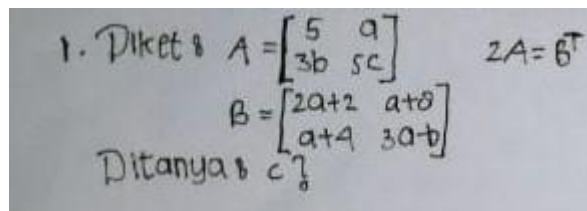 1. Diket : A = [5 a
3b 5c] 2A = B^T
B = [2a+2 a+8
a+4 3a-b]
Ditanya : c ?